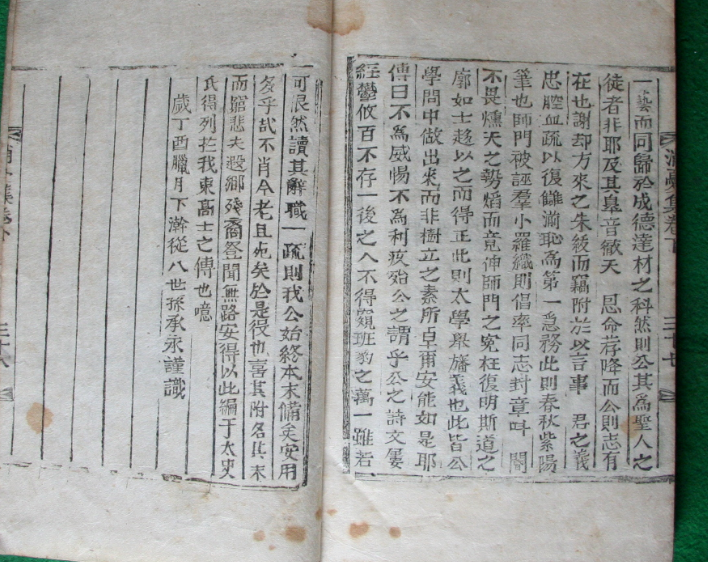 一藝而同歸於成德達材之科然則公其爲聖人之
徒者非耶及其皐音徹天 恩命荐降而公則志有
在也謝却方來之朱紱而竊附於以言事 君之義
忠膣血疏以復讎滌恥爲第一急務此則春秋紫陽
筆也師門被誣羣小羅織則倡率同志封章叫 閤
不畏燻天之勢焰而竟伸師門之寃枉復明斯道之
廓如士趍以之而得正此則太學衆旛義也此皆公
學問中做出來而非樹立之素所卓爾安能如是耶
傳曰不爲威惕不爲利疚殆公之謂乎公之詩文屢
經鬱攸百不存一後之人不得窺班豹之萬一雖若
可恨然讀其辭職一疏則我公始終本末備矣安用
多乎哉不肖今老且死矣於是役也喜其附名其末
而竊悲夫遐鄕殘裔登聞無路安得以此編于太史
氏得列於我東高士之傳也噫
歲丁酉臘月下澣從八世孫承永謹識
集卷下
三十七
三十八